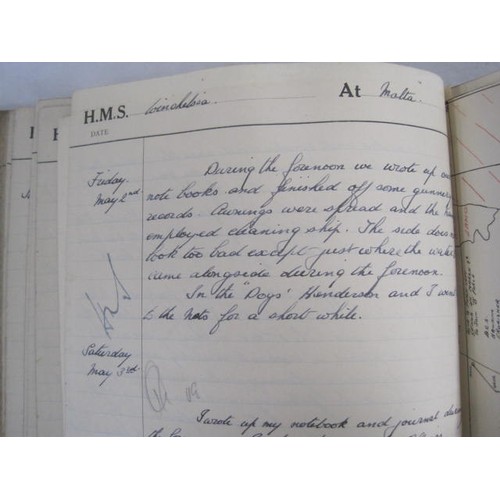 H.M.S. Winchelsea. At Malta.
DATE
Friday
May 2nd
During the forenoon we wrote up our
note books and finished off some gunnery
records. Awnings were spread and the
employed cleaning ship. The side does
look too bad except just where the
came alongside during the forenoon.
In the "Dogs" Henderson and I went
to the for a short while.
Saturday
May 3rd
I wrote up my notebook and journal